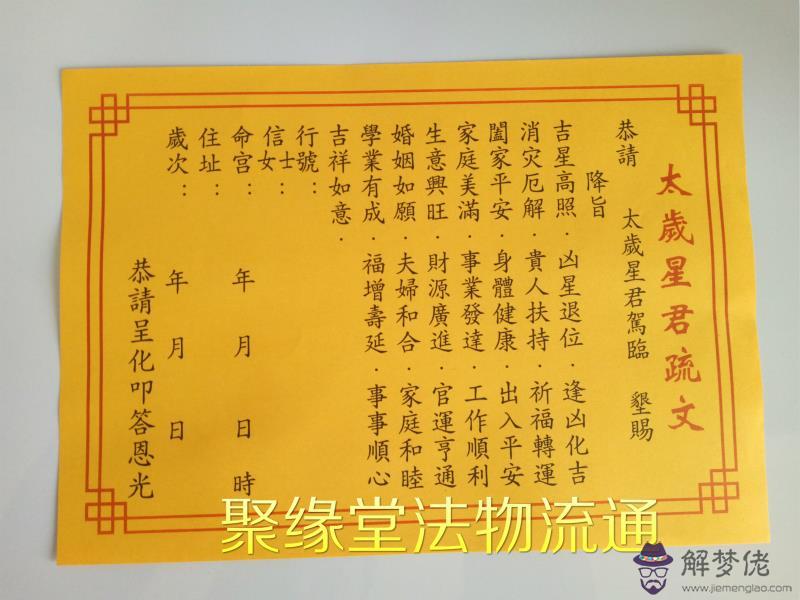 太歲星君疏文
恭請 太歲星君駕臨 墾賜
降旨
吉星高照．凶星退位．逢凶化吉
消灾厄解．貴人扶持．祈福轉運
闔家平安．身體健康．出入平安
家庭美滿．事業發達．工作順利
生意興旺．財源廣進．官運亨通
婚姻如願．夫婦和合．家庭和睦
學業有成．福增壽延．事事順心
吉祥如意．
行號：
信士女：
命宮： 年 月 日 時
住址：
歲次： 年 月 日
恭請呈化叩答恩光
聚缘堂法物流通
解梦佬
www.jiemenglao.com